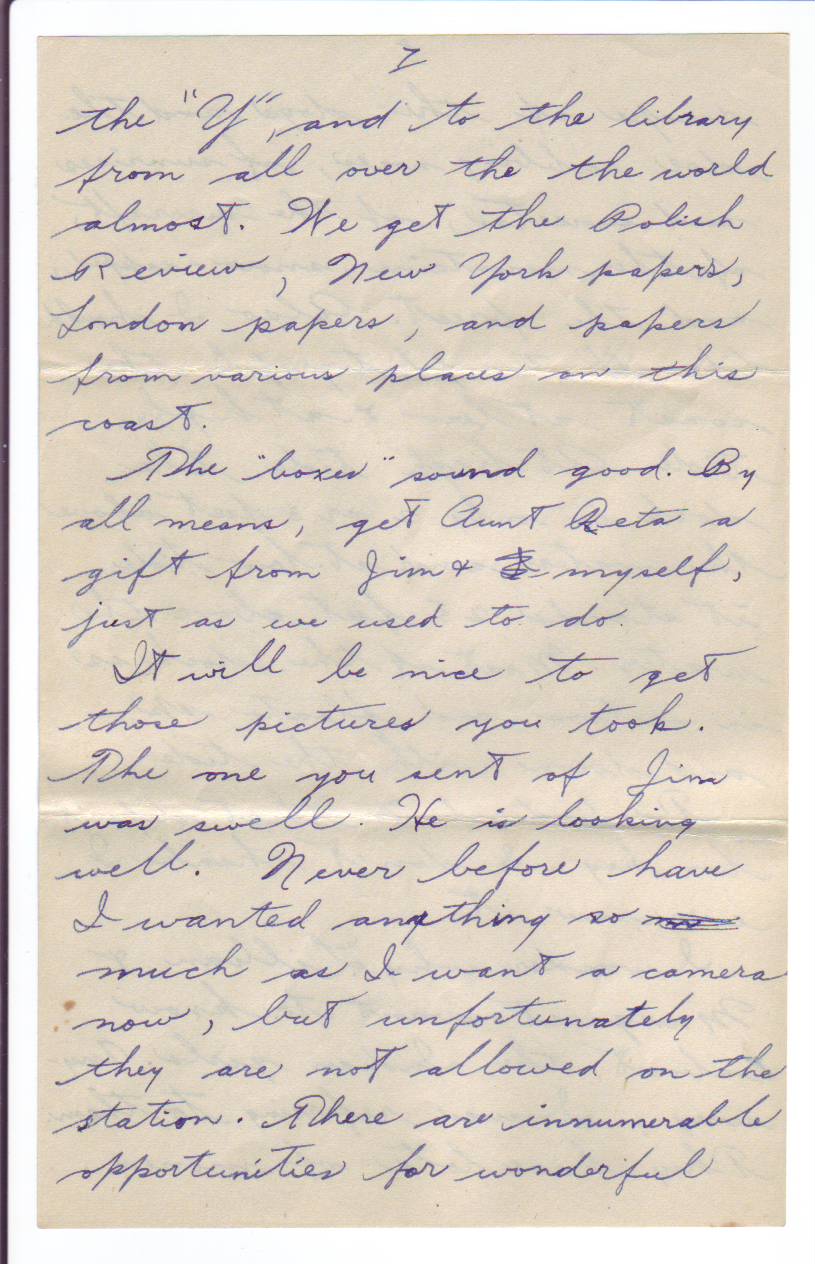 7
the "Y", and to the library
from all over the the world
almost. We get the Polish
Review, New York papers,
London papers, and papers
from various places on this
coast.
The "boxes" sound good. By
all means, get Aunt Reta a
gift from Jim & myself,
just as we used to do.
It will be nice to get
those pictures you took.
The one you sent of Jim
was swell. He is looking
well. Never before have
I wanted anything so
much as I want a camera
now, but unfortunately
they are not allowed on the
station. There are innumerable
opportunities for wonderful